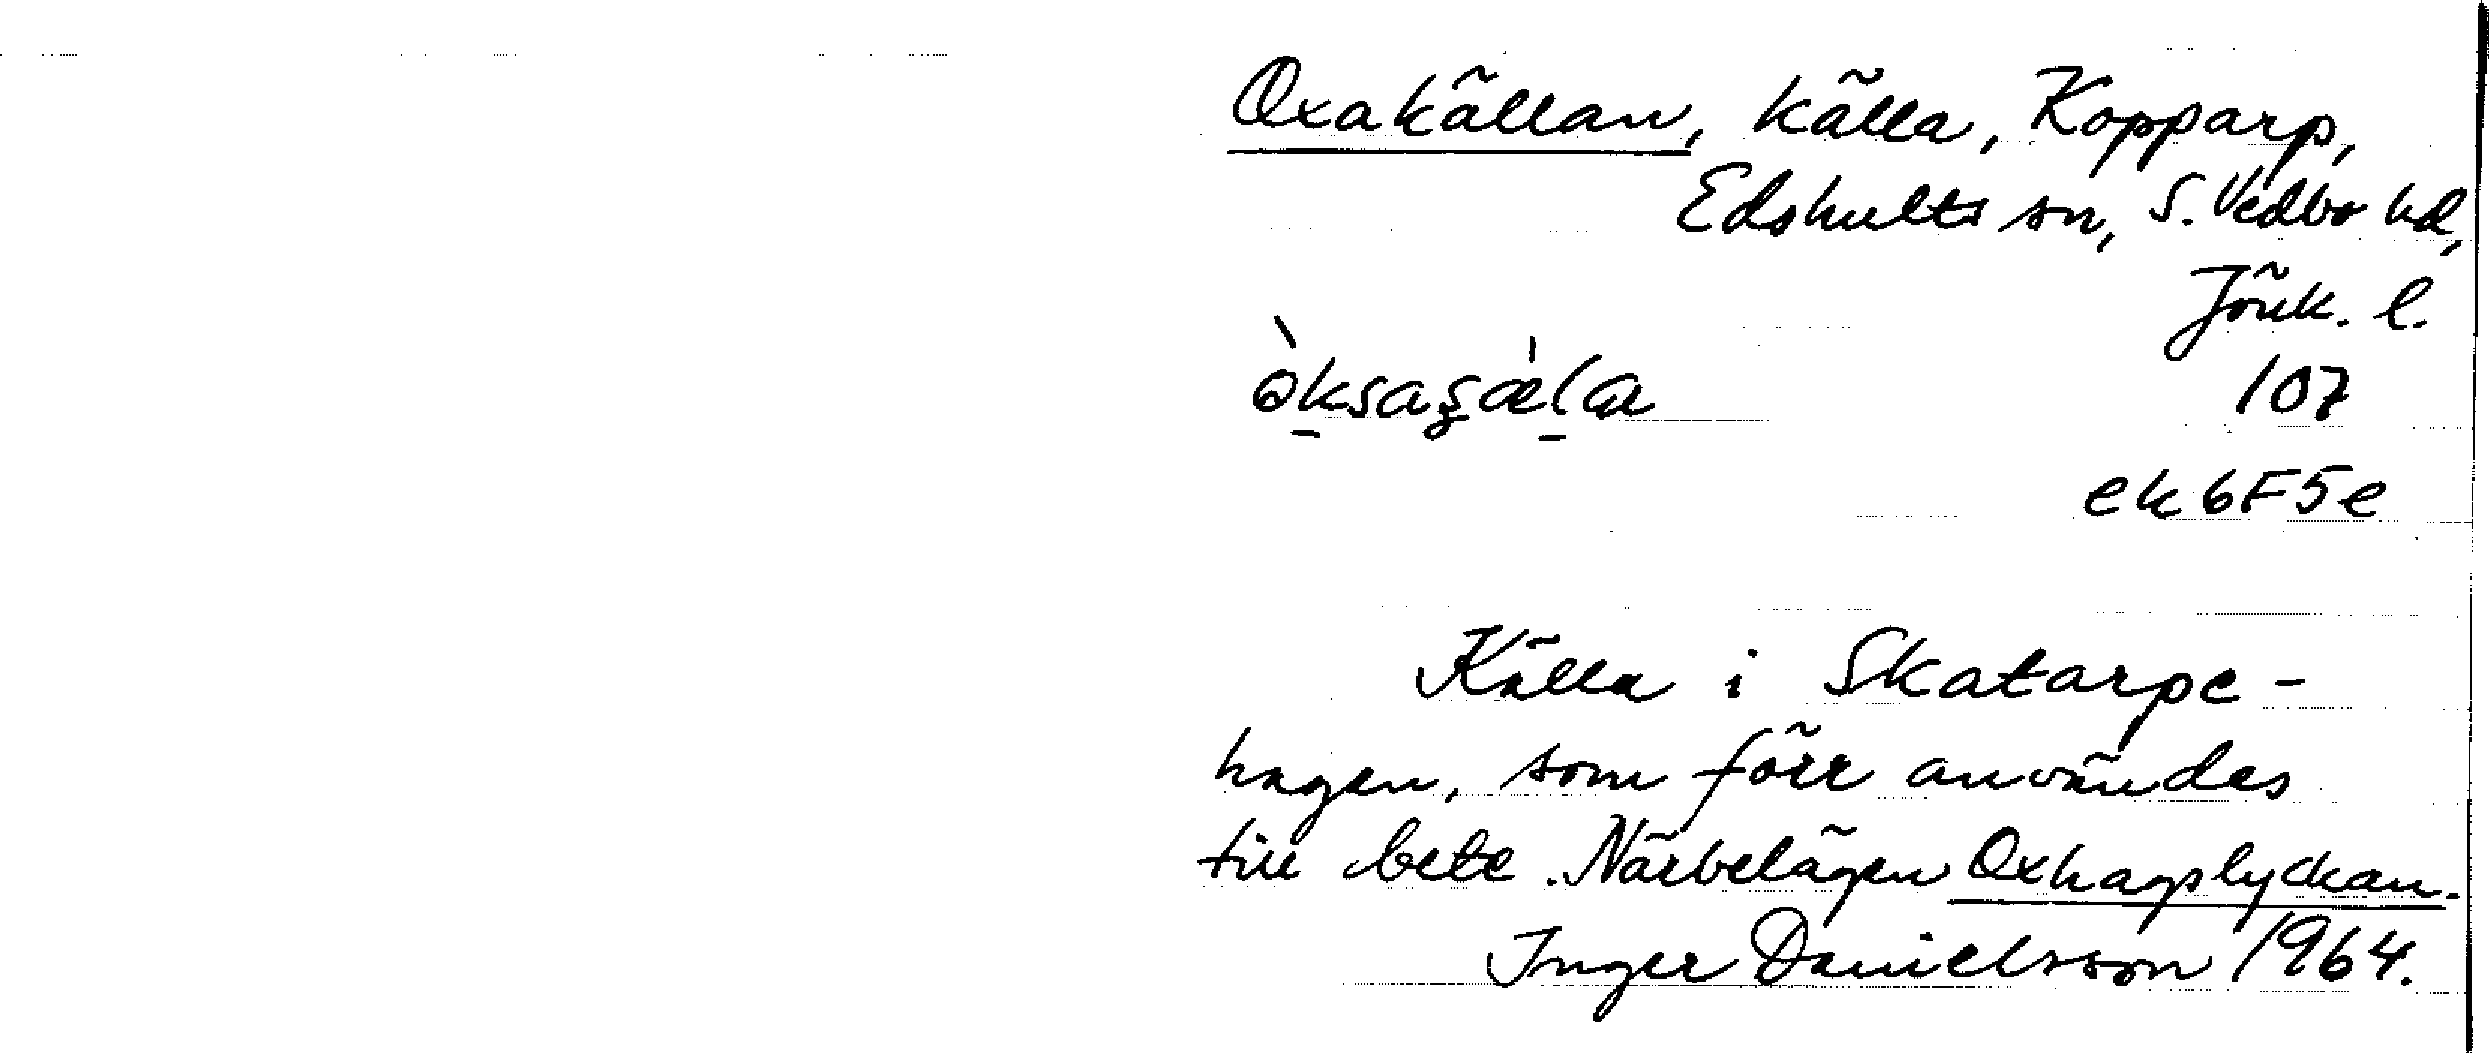 Oxakällan, källa, Kopparp,
Edshults sn, S. Vedbo hd,
Jönk. l.
107
ek 6F5e
Källa i Skatarpe-
hagen, som förr användes
till bete. Närbelägen Oxhagslyckan.
Inger Danielsson 1964.